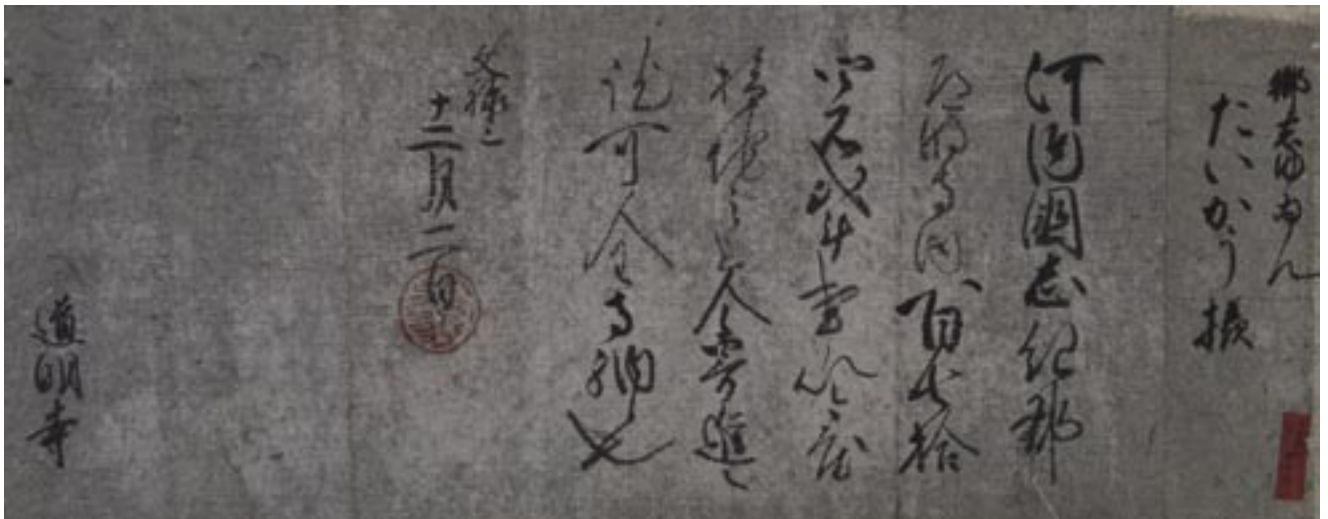 御志ゆゐん
たいかう様
河内國志紀郡
道明寺内百七拾
四石弐斗事今度
検地之上令寄進之
訖可全寺納也
文禄三
十二月二日
道明寺